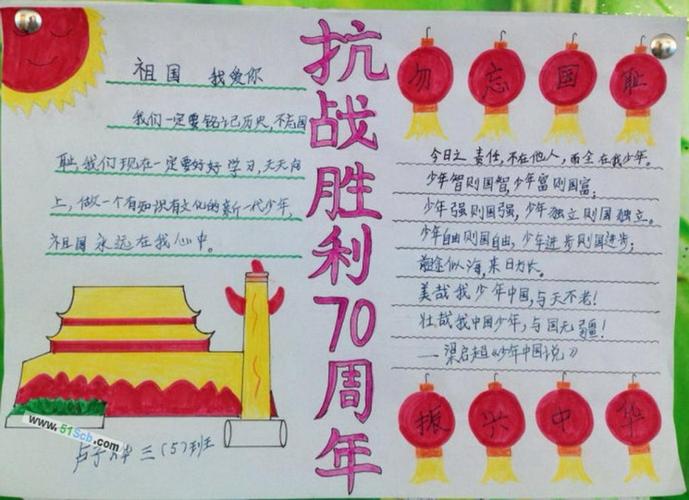 抗战胜利70周年
祖国 我爱你
我们一定要铭记历史，不忘国
耻，我们现在一定要好好学习，天天向
上，做一个有知识有文化的新一代少年，
祖国永远在我心中。
www.51Scb.com
三（5）班
勿忘国耻
今日之责任，不在他人，而全在我少年。
少年智则国智，少年富则国富；
少年强则国强，少年独立则国独立。
少年自由则国自由，少年进步则国进步；
前途似海，来日方长。
美哉我少年中国，与天不老！
壮哉我中国少年，与国无疆！
——梁启超《少年中国说》
振兴中华